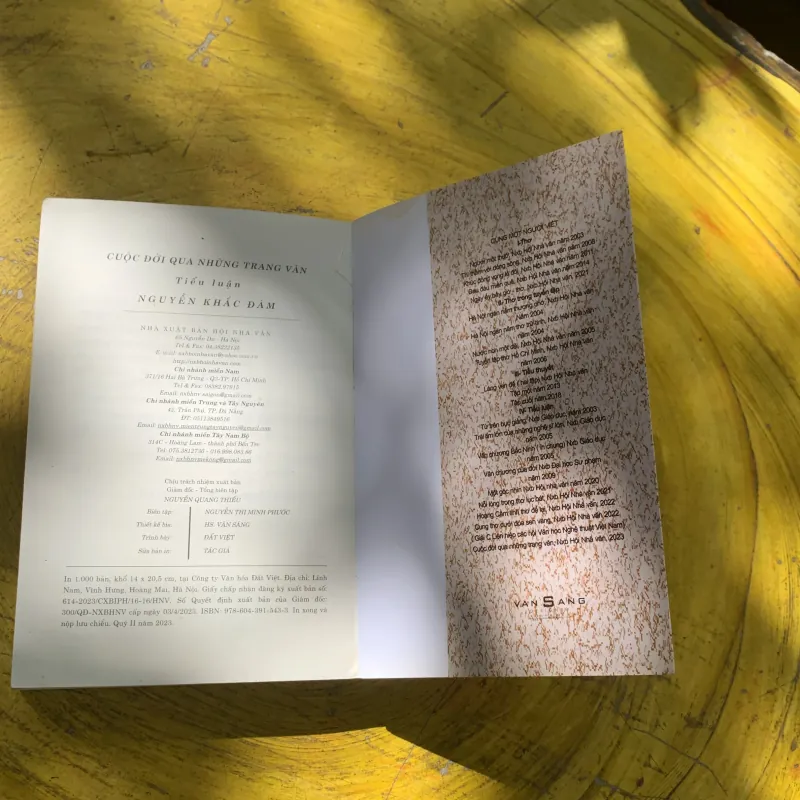 CUỘC ĐỜI QUA NHỮNG TRANG VĂN
Tiểu luận
NGUYỄN KHẮC ĐÀM
NHÀ XUẤT BẢN HỘI NHÀ VĂN
65 Nguyễn Du - Hà Nội
Tel & Fax: 04.38222135
http://nxbhoinhavan.com
Chi nhánh miền Nam
371/16 Hai Bà Trưng - Q3/TP. Hồ Chí Minh
Tel & Fax: 08382.97915
Email: nxbhnv.saigon@gmail.com
Chi nhánh miền Trung và Tây Nguyên
42, Trần Phú, TP. Đà Nẵng
ĐT: 05113849516
Chi nhánh miền Tây Nam Bộ
314C - Hoàng Lam - thành phố Bến Tre
Chịu trách nhiệm xuất bản
Giám đốc - Tổng biên tập
NGUYỄN QUANG THIỀU
Biên tập NGUYỄN THỊ MINH PHƯỚC
Thiết kế bìa HS. VĂN SÁNG
Trình bày ĐẤT VIỆT
Sửa bản in TÁC GIẢ
In 1.000 bản, khổ 14 x 20,5 cm, tại Công ty Văn hóa Đất Việt. Địa chỉ: Lĩnh
Nam, Vĩnh Hưng, Hoàng Mai, Hà Nội. Giấy chấp nhận đăng ký xuất bản số:
614-2023/CXBIPH/16-16/HNV. Số Quyết định xuất bản của Giám đốc:
300/QĐ-NXBHNV cấp ngày 03/4/2023. ISBN: 978-604-391-543-3. In xong và
nộp lưu chiểu: Quý II năm 2023.
CÙNG MỘT NGƯỜI VIẾT
I. Thơ
Nxb Hội Nhà văn năm 2003
Nxb Hội Nhà văn năm 2008
Nxb Hội Nhà văn năm 2011
Nxb Hội Nhà văn năm 2014
Nxb Hội Nhà văn, 2021
II. Thơ trong tuyển tập
Hà Nội ngàn năm thương nhớ, Nxb Hội Nhà văn
năm 2004
Nxb Hội Nhà văn
năm 2004
Nxb Hội Nhà văn năm 2005
Tuyển thơ Hồ Chí Minh, Nxb Hội Nhà văn
năm 2006
III. Tiểu thuyết
Nxb Hội Nhà văn
Tập một năm 2013
Tập cuối năm 2018
IV. Tiểu luận
Từ trên bục giảng, Nxb Giáo dục, năm 2003
Nxb Giáo dục
năm 2005
Văn phương Bắc Ninh ( in chung) Nxb Giáo dục
năm 2005
Văn chương của đời Nxb Đại học Sư phạm
năm 2009
Một góc nhìn, Nxb Hội Nhà văn năm 2020
Nỗi lòng trong thơ lục bát, Nxb Hội Nhà văn 2021
Hoàng Cầm thi, thơ để lại, Nxb Hội Nhà văn, 2022
Nxb Hội Nhà văn, 2022
( Giải C Liên hiệp các hội Văn học Nghệ thuật Việt Nam)
Cuộc đời qua những trang văn, Nxb Hội Nhà văn, 2023
VAN SANG